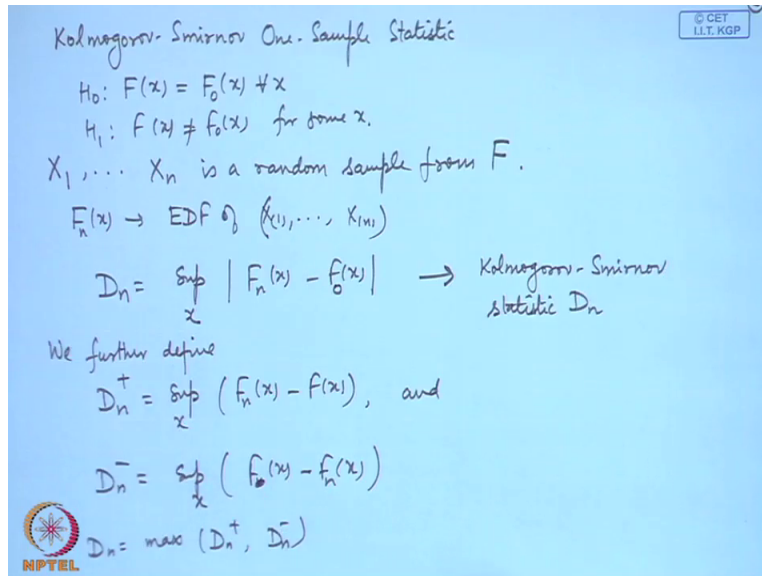 © CET
I.I.T. KGP
Kolmogorov-Smirnov One-Sample Statistic
H₀: F(x) = F₀(x) ∀ x
H₁: F(x) ≠ F₀(x) for some x.
X₁, ... Xₙ is a random sample from F.
Fₙ(x) → EDF of (X₍₁₎, ..., X₍ₙ₎)
Dₙ = sup | Fₙ(x) - F₀(x) | → Kolmogorov-Smirnov
x statistic Dₙ
We further define
Dₙ⁺ = sup ( Fₙ(x) - F(x) ), and
x
Dₙ⁻ = sup ( F₀(x) - Fₙ(x) )
x
Dₙ = max (Dₙ⁺, Dₙ⁻)
NPTEL